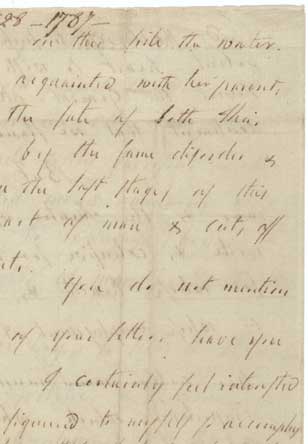 28 - 1787 -
on this side the water.
acquainted with her parent,
the fate of both this
by the same disorder &
the last stages of this
of man & cuts off
You do not mention
of your letters. have you
I certainly feel interested
to myself to accompany